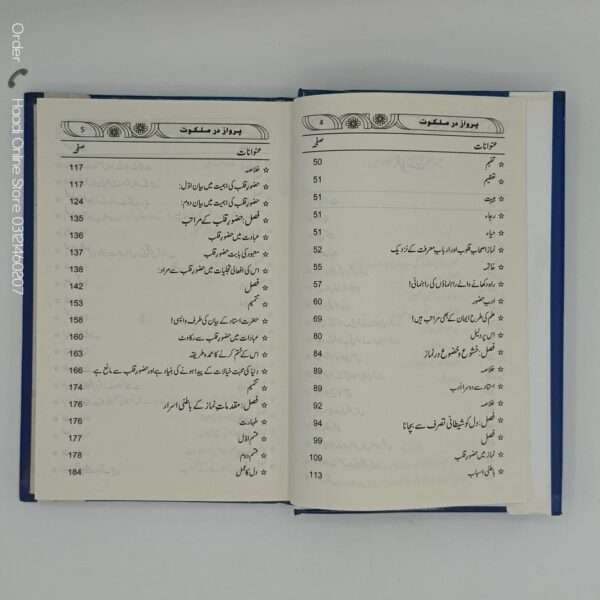 Order Hoodi Online Store 03124460207
پرواز در ملکوت 4
عنوانات صفحہ
☆ تتمیم 50
☆ تعظیم 51
☆ ہیبت 51
☆ رجاء 51
☆ حیاء 51
☆ نماز اصحاب قلوب اور ارباب معرفت کے نزدیک 52
☆ خاتمہ 55
☆ راہ دکھانے والے راہنماؤں کی راہنمائی! 57
☆ ادب حضور 60
☆ علم کی طرح ایمان کے بھی مراتب ہیں! 69
☆ اس پر دلیل 80
☆ فصل: خشوع و خضوع در نماز 84
☆ خلاصہ 89
☆ استاد سے دوسرا ادب 89
☆ خلاصہ 92
☆ فصل: دل کو شیطانی تصرف سے بچانا 94
☆ فصل 99
☆ نماز میں حضور قلب 109
☆ باطنی اسباب 113
پرواز در ملکوت 5
عنوانات صفحہ
☆ خلاصہ 117
☆ حضور قلب کی اہمیت میں بیان اوّل: 117
☆ حضور قلب کی اہمیت میں بیان دوم: 124
☆ فصل: حضور قلب کے مراتب 135
☆ عبادت میں حضور قلب 136
☆ معبود کی بابت حضور قلب 137
☆ اس کی افعالی تجلیات میں حضور قلب سے مراد: 138
☆ فصل 142
☆ تتمیم 153
☆ حضرت استاد کے بیان کی طرف واپسی! 158
☆ عبادات میں حضور قلب سے رکاوٹ 160
☆ اس کے ختم کرنے کا عمدہ طریقہ 163
☆ دنیا کی محبت خیالات کے پیدا ہونے کی بنیاد ہے اور حضور قلب سے مانع ہے 166
☆ تتمیم 174
☆ فصل: مقدمات نماز کے باطنی اسرار 176
☆ طہارت 176
☆ قسم اوّل 177
☆ قسم دوم 178
☆ دل کا عمل 184